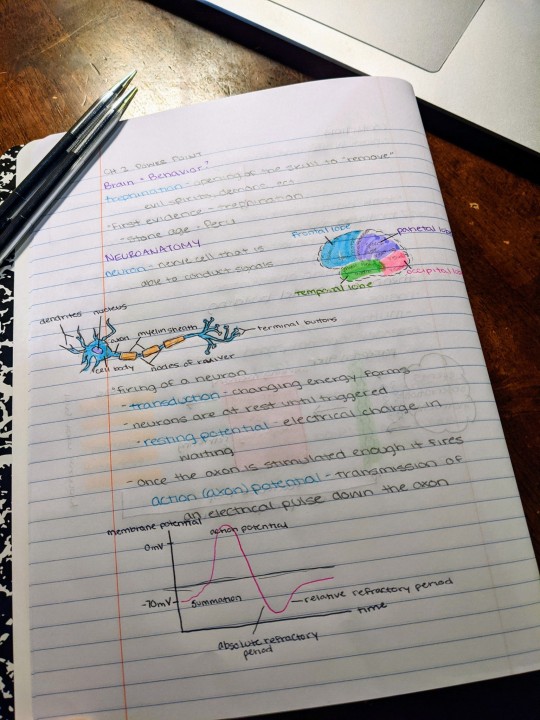 CH 2 POWER POINT
Brain + Behavior
trephination - opening of the skull to "remove"
evil spirits, demons etc
first evidence - trephination
- stone age - Peru
NEUROANATOMY
neuron - nerve cell that is
able to conduct signals
frontal lobe
parietal lobe
occipital lobe
temporal lobe
dendrites
nucleus
axon
myelin sheath
terminal buttons
cell body
nodes of ranvier
*firing of a neuron
- transduction - changing energy forms
- neurons are at rest until triggered
- resting potential - electrical charge in
waiting
- once the axon is stimulated enough it fires
action (axon) potential - transmission of
an electrical pulse down the axon
membrane potential
action potential
0mV
-70mV
summation
relative refractory period
time
absolute refractory
period